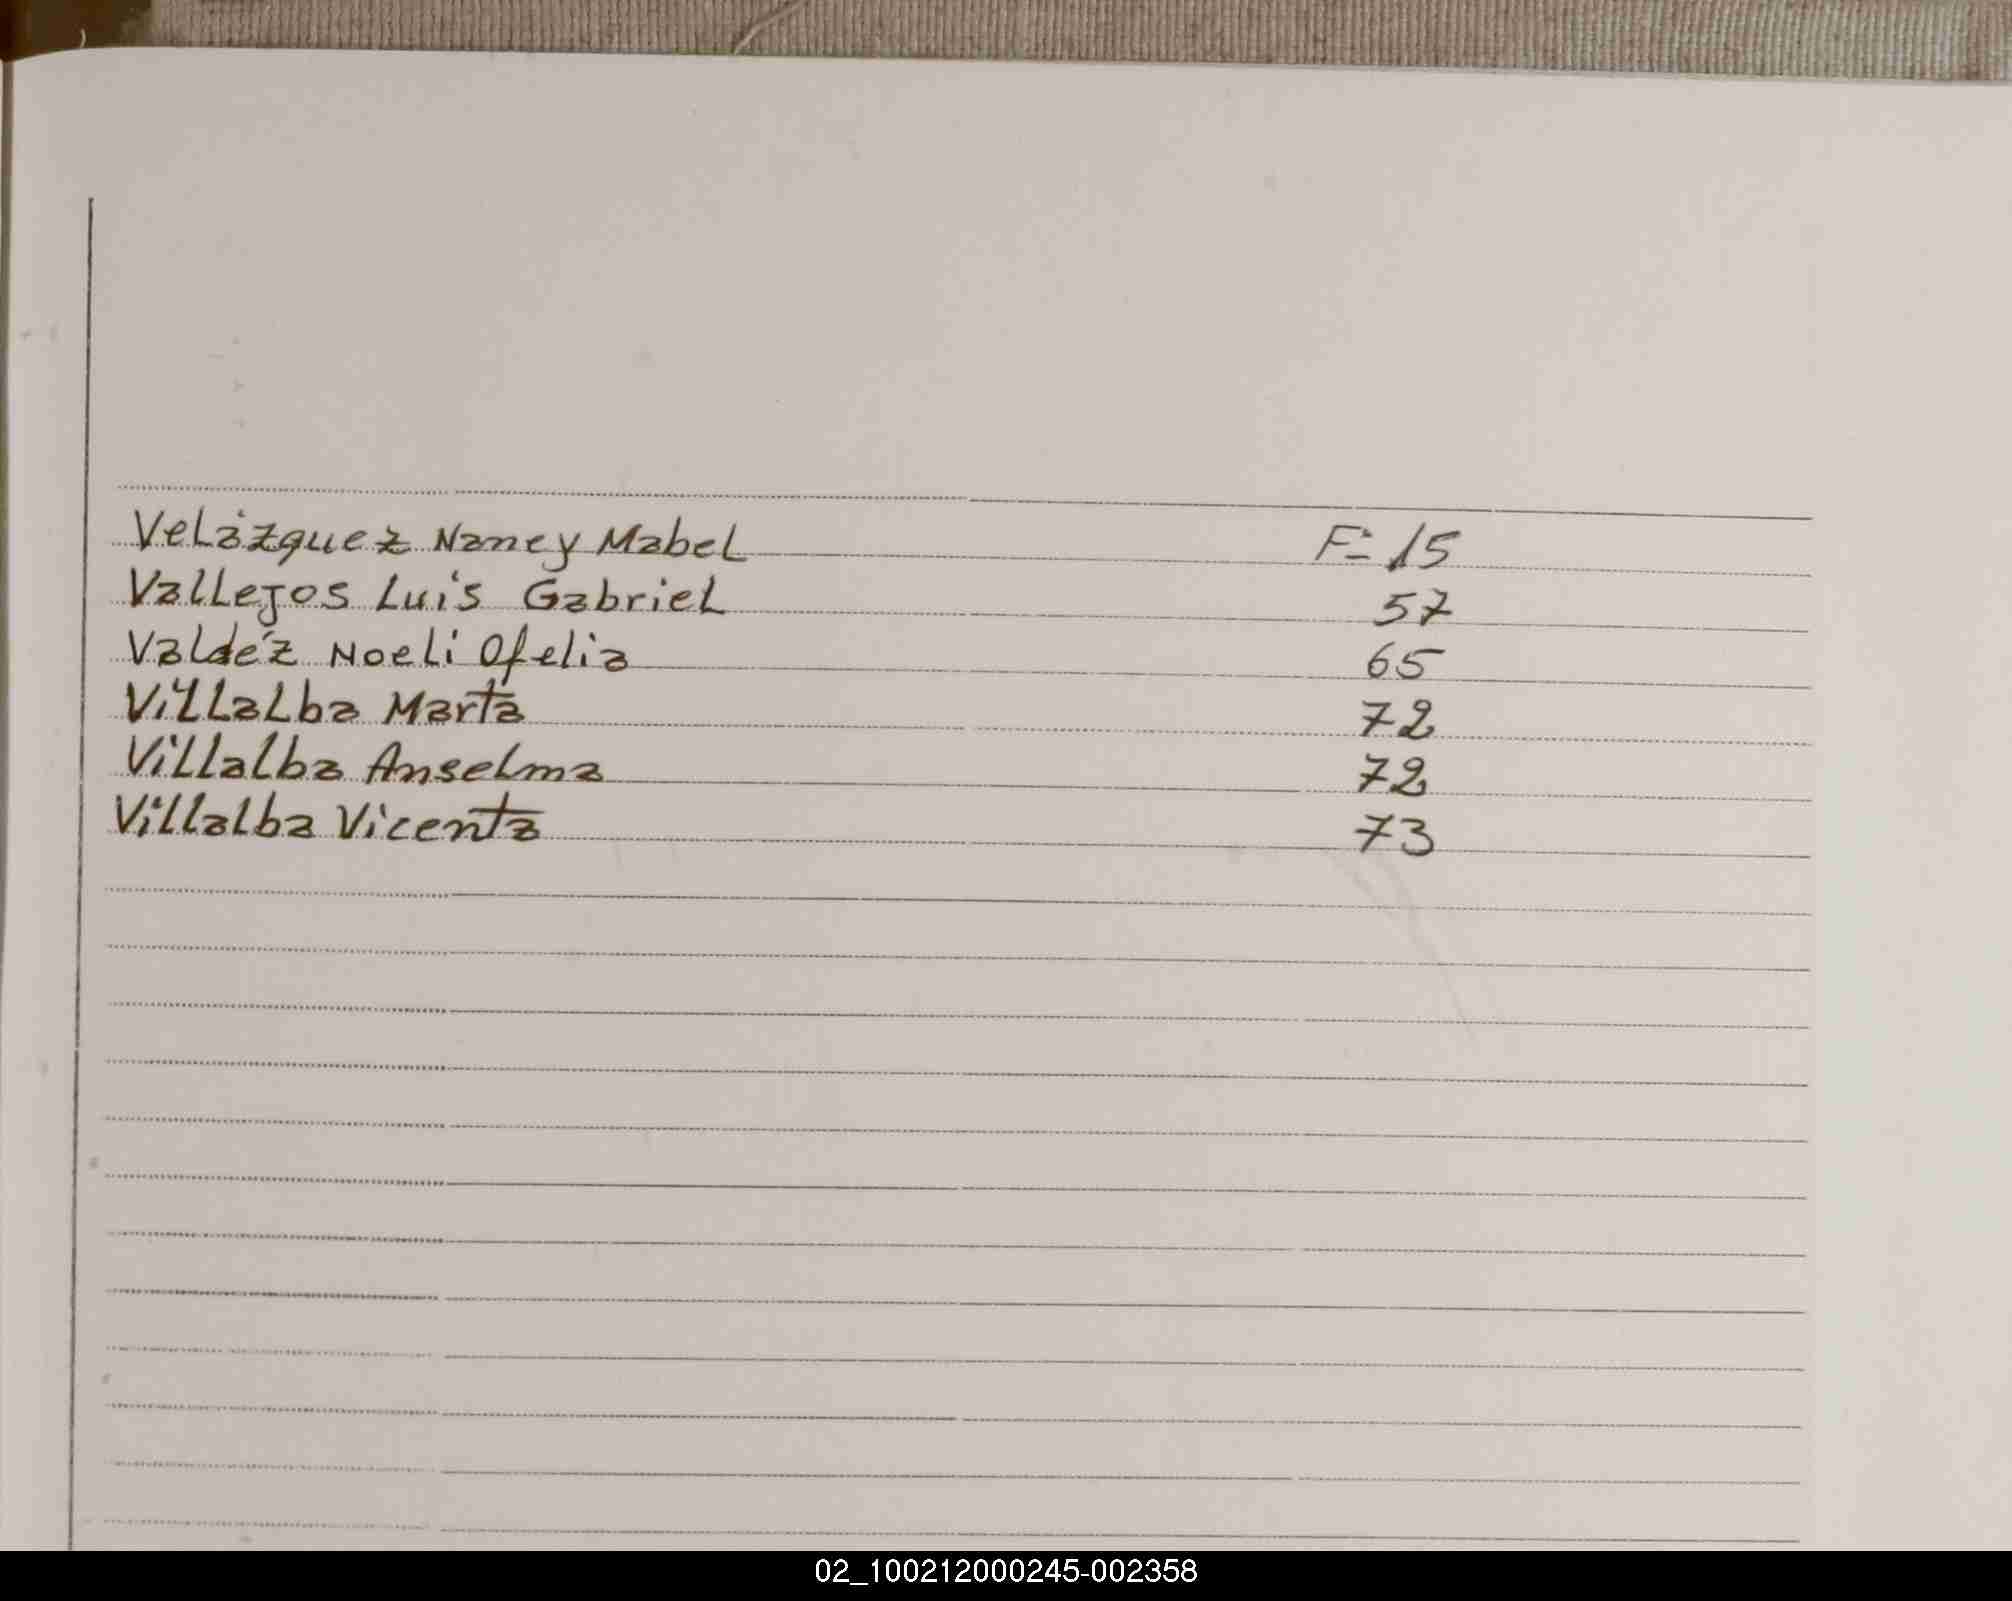 Velázquez Nancy Mabel F= 15
Vallejos Luis Gabriel 57
Valdéz Noeli Ofelia 65
Villalba Marta 72
Villalba Anselma 72
Villalba Vicenta 73
02_100212000245-002358